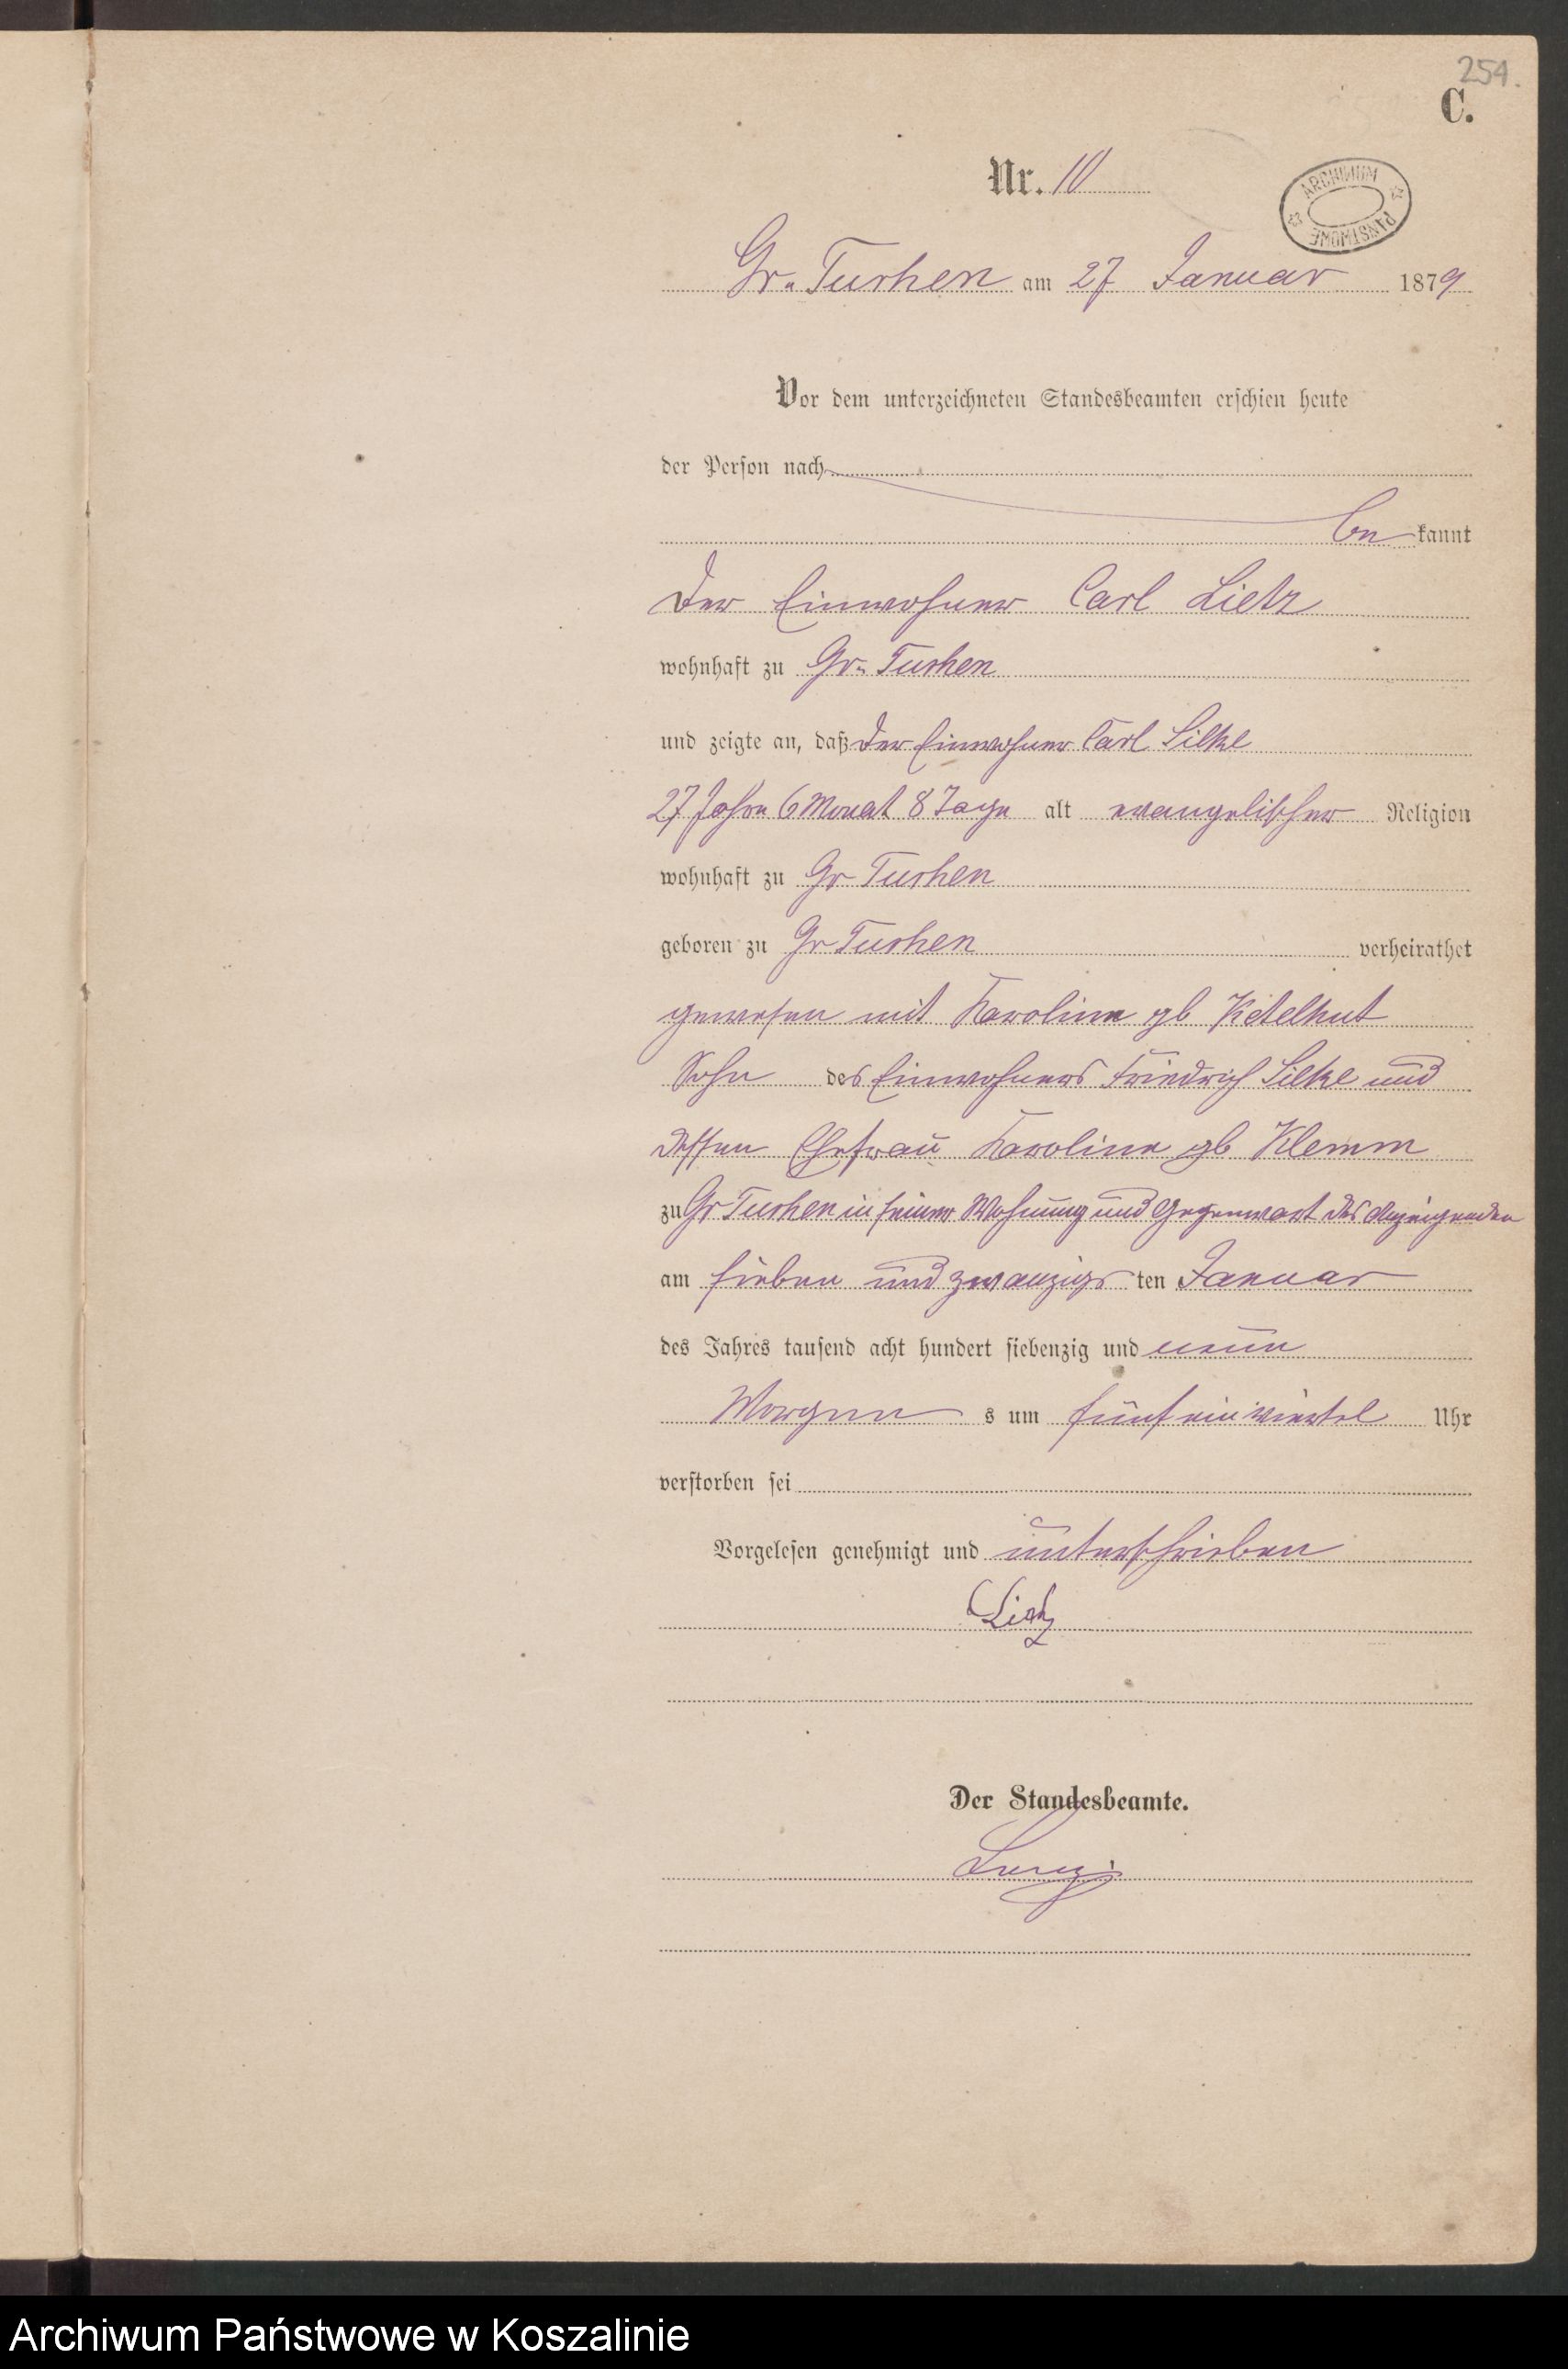 254.
C.
Nr. 10
ARCHIWUM PAŃSTWOWE
Gr. Tuchen am 27 Januar 1879
Vor dem unterzeichneten Standesbeamten erschien heute
der Person nach
be kannt
der Einwohner Carl Lietz
wohnhaft zu Gr. Tuchen
und zeigte an, daß der Einwohner Carl Silke
27 Jahre 6 Monat 8 Tage alt evangelischer Religion
wohnhaft zu Gr Tuchen
geboren zu Gr Tuchen verheirathet
gewesen mit Karoline gb Ketelhut
Sohn des Einwohners Friedrich Silke und
dessen Ehefrau Karoline gb Klemm
zu Gr Tuchen in seiner Wohnung und Gegenwart des Anzeigenden
am sieben und zwanzigs ten Januar
des Jahres tausend acht hundert siebenzig und neun
Morgen s um fünf ein viertel Uhr
verstorben sei
Vorgelesen genehmigt und unterschrieben
C Lietz
Der Standesbeamte.
Archiwum Państwowe w Koszalinie